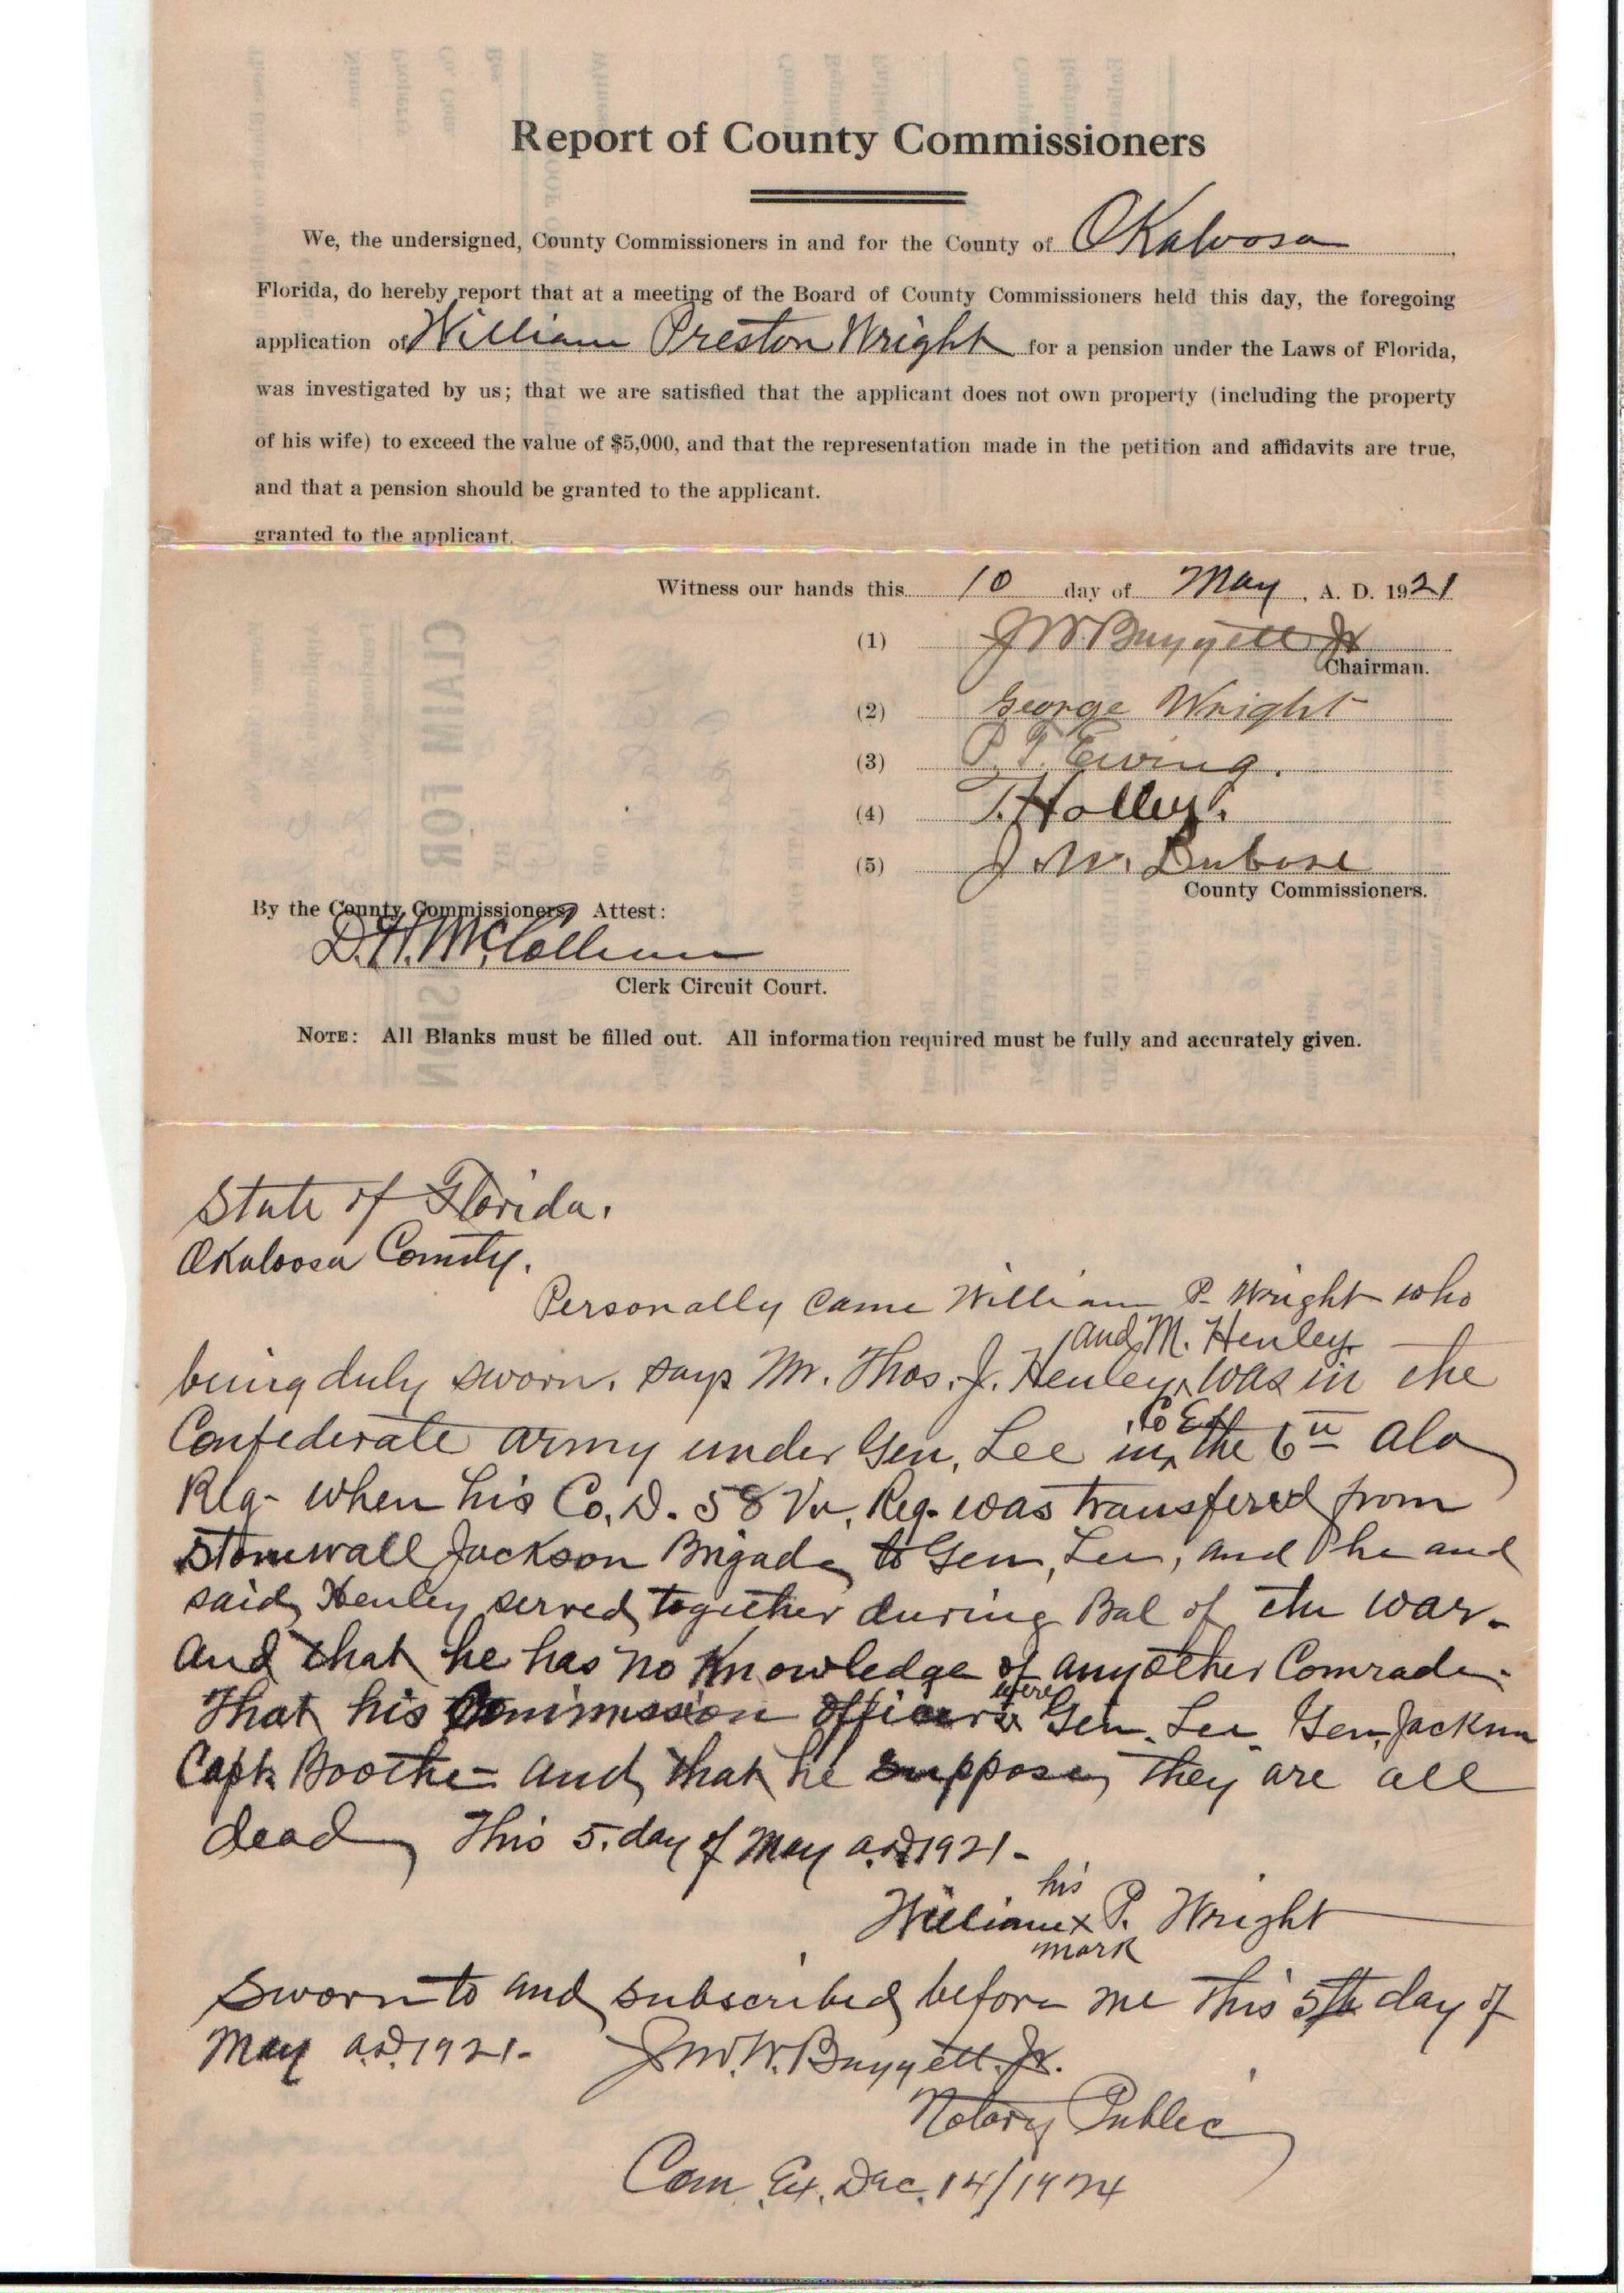 Report of County Commissioners
We, the undersigned, County Commissioners in and for the County of OKaloosa,
Florida, do hereby report that at a meeting of the Board of County Commissioners held this day, the foregoing
application of William Preston Wright for a pension under the Laws of Florida,
was investigated by us; that we are satisfied that the applicant does not own property (including the property
of his wife) to exceed the value of $5,000, and that the representation made in the petition and affidavits are true,
and that a pension should be granted to the applicant.
granted to the applicant.
Witness our hands this 10 day of May, A. D. 1921
(1) J W Baggett Jr
Chairman.
(2) George Wright
(3) P. T. Ewing.
(4) T. Holley.
(5) J. W. Dubose
County Commissioners.
By the County Commissioners, Attest:
D. H. McCallum
Clerk Circuit Court.
NOTE: All Blanks must be filled out. All information required must be fully and accurately given.
State of Florida.
OKaloosa County.
Personally came William P. Wright who
and M. Henley
being duly sworn, says Mr. Thos. J. Henley was in the
Co E of
Confederate army under Gen, Lee in the 6th Ala
Reg- when his Co. D. 58 Va. Reg. was transfered from
Stonewall Jackson Brigade to Gen, Lee, and he and
said Henley served together during Bal of the war-
and that he has no Knowledge of any other Comrade.
were
That his Commission officers Gen. Lee. Gen. Jackson
Capt. Boothe- and that he suppose they are all
dead This 5. day of May A.D 1921-
his
William x P. Wright
mark
Sworn to and subscribed before me this 5th day of
May A.D. 1921- Jno. W. Baggett. Jr.
Notary Public
Com. Ex. Dec. 14/1924